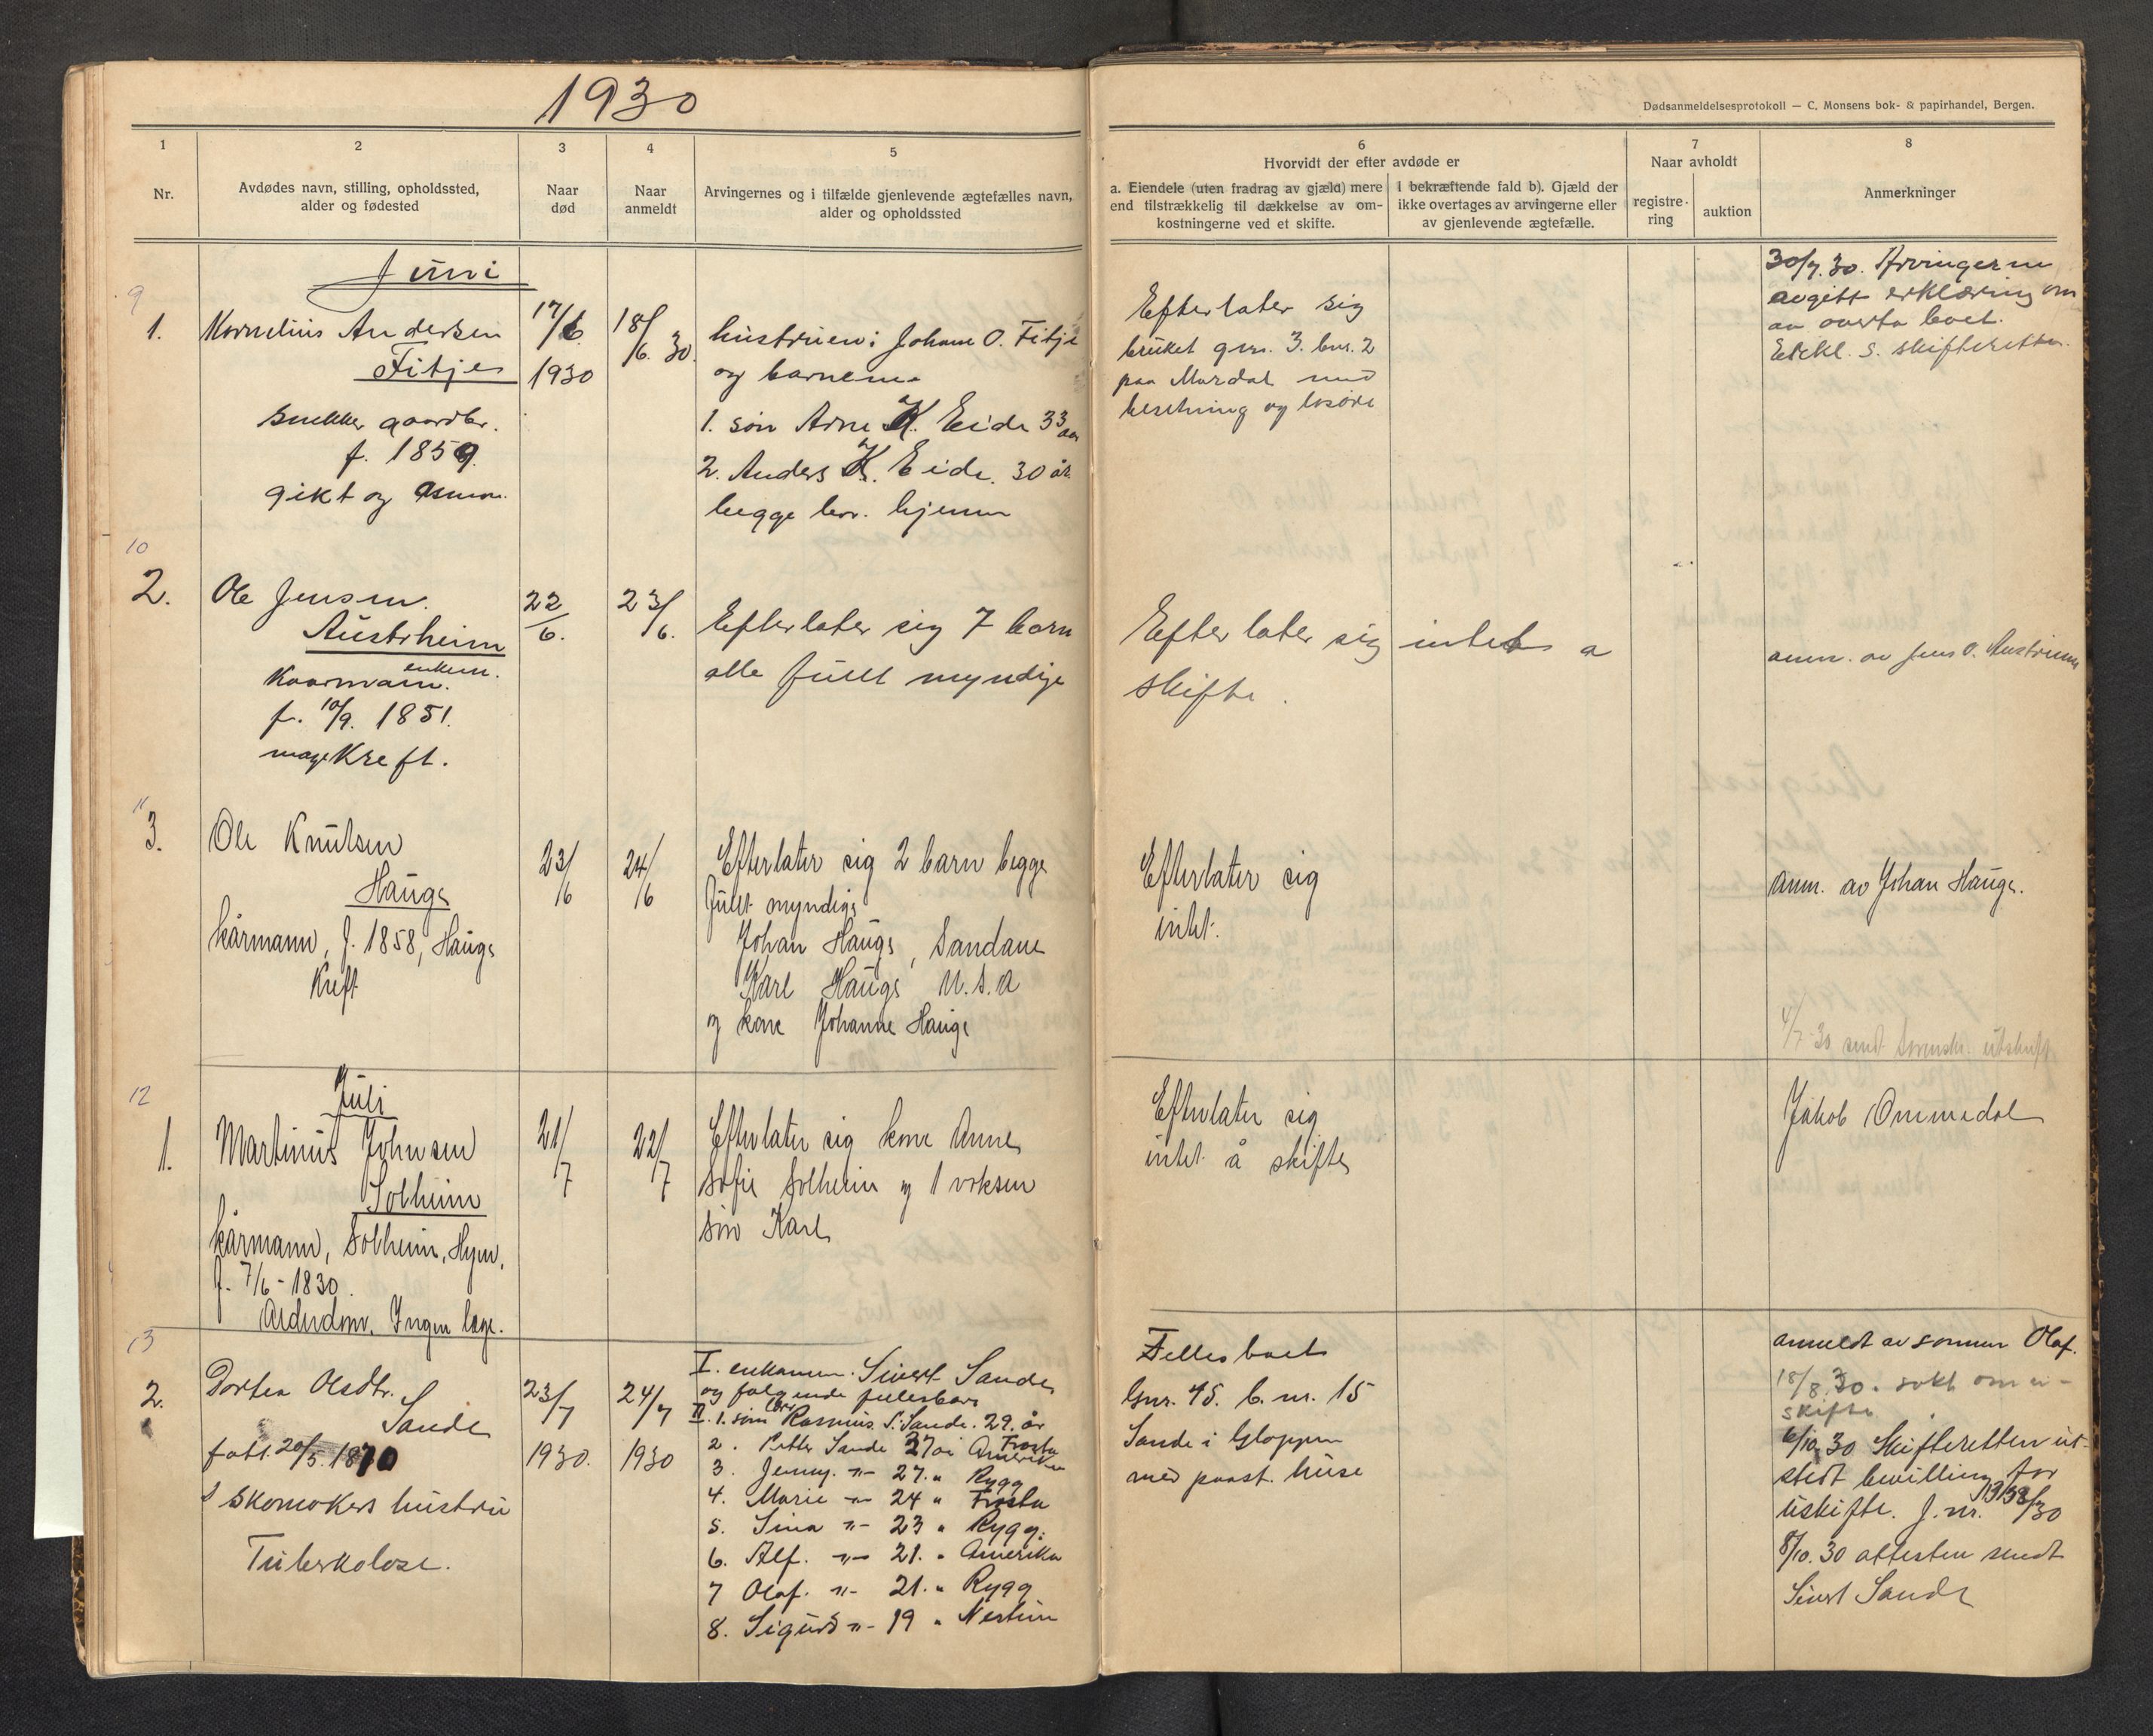 1930
Dødsanmeldelsesprotokoll — C. Monsens bok- & papirhandel, Bergen.
1
2
3
4
5
6
7
8
Nr.
Avdødes navn, stilling, opholdssted,
alder og fødested
Naar
død
Naar
anmeldt
Arvingernes og i tilfælde gjenlevende ægtefælles navn,
alder og opholdssted
Hvorvidt der efter avdøde er
a. Eiendele (uten fradrag av gjæld) mere
end tilstrækkelig til dækkelse av om-
kostningerne ved et skifte.
I bekræftende fald b). Gjæld der
ikke overtages av arvingerne eller
av gjenlevende ægtefælle.
Naar avholdt
registre-
ring
auktion
Anmerkninger
Juni
9
1.
Kornelius Andersen
Fitje
snekker gaardbr.
f. 1859.
gikt og
17/6
1930
18/6 30.
hustruen: Johane O. Fitje
og barnene
1. søn Arne K. Eide 33 aar
2. Anders K. Eide. 30 år
begge bor. hjemme
Efterlater sig
bruket gnr. 3. bnr. 2
paa Mardal med
besetning og løsøre
30/7.30. Arvingerne
avgitt erklæring om
aa overta boet.
Erkl. s. skifteretten.
10
2.
Ole Jensen.
Austrheim
enkem.
Kaarmann.
f. 10/9. 1851.
mage Kreft.
22/6.
23/6.
Efterlater sig 7 barn
alle fullt myndige
Efterlater sig intet a
skifte.
anm. av Jens O. Austrheim
11
3.
Ole Knutsen
Hauge
kårmann, f. 1858, Hauge
Kreft
23/6
24/6
Efterlater sig 2 barn begge
fullt myndige
Johan Hauge, Sandane
Karl Hauge U.S.A
og kone Johanne Hauge
Efterlater sig
intet.
Anm. av Johan Hauge.
4/7-30 sendt utskrift
Juli
12
1.
Martinus Johnsen
Solheim
kårmann, Solheim, Hyen,
f. 7/6-1830.
Alderdom. Ingen læge.
21/7
22/7
Efterlater sig kone Anne
Sofie Solheim og 1 voksen
søn Karl
Efterlater sig
intet å skifte
Jakob Ommedal
13
2.
Dortea Olsdtr.
Sande
født 20/5. 1870
skomakers hustru
Tuberkolose.
23/7
1930.
24/7
1930
I. enkemann. Sivert Sande
og følgende fellesbarn
II. 1. søn Rasmus S. Sande. 29. år
2. Petter Sande 27 år Amerika
3. Jenny. -"- 27. " Rygg
4. Marie -"- 24 " Frosta
5. Sina -"- 23 " Rygg.
6. Alf. -"- 21. " Amerika
7 Olaf. -"- 21. " Rygg
8. Sigurd -"- 19 "
Fellesboet
Gnr. 45. b. nr. 15
Sande i Gloppen
med paast. huse
anmeldt av sønnen Olaf.
18/8.30. søkt om u-
skifte
6/10 30 Skifteretten ut-
stedt bevilling for
uskifte. J. nr. 1938/30
8/10.30 attesten sendt
Sivert Sande